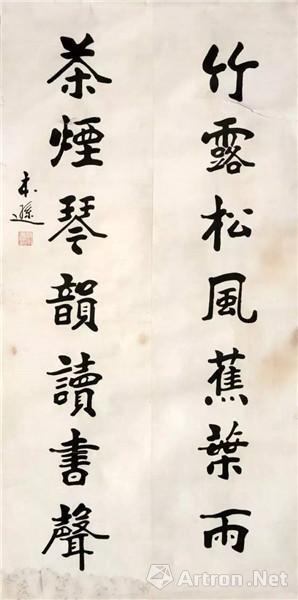 竹露松風蕉葉雨
茶煙琴韻讀書聲
Artron.Net